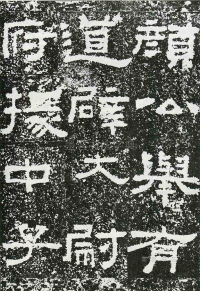 顏公舉有
道辟大尉
府掾中子